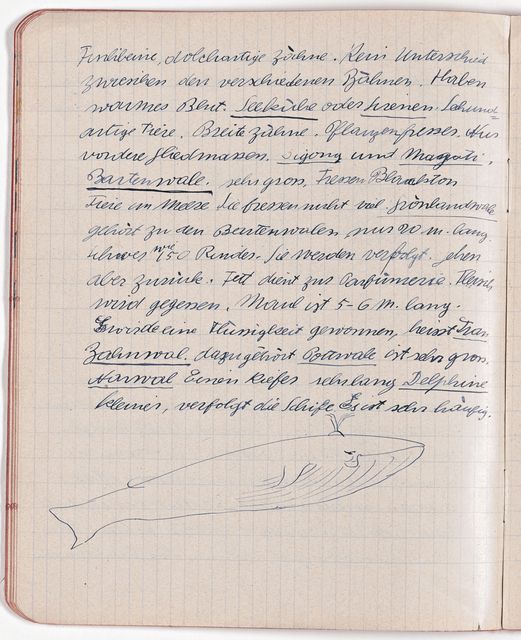 dolchartige Zähne. Kein Unterschied
zwischen den verschiedenen Zähnen. Haben
warmes Blut. Seekühe oder Sirenen.
artige Tiere. Breite Zähne. Pflanzenfresser. Nur
vordere Gliedmassen. Digong und Magati.
Bartenwale. sehr gross, Fressen Plankton
Tiere im Meere Sie fressen nicht viel. Grönlandswale
gehört zu den Bartenwalen, nur 20 m. lang.
schwer wie 150 Rinder. Sie werden verfolgt. gehen
aber zurück. Fett dient zur Parfümerie. Fleisch
wird gegessen. Maul ist 5-6 m. lang.
Es wurde eine Flüssigkeit gewonnen, heisst Tran
Zahnwal. dazu gehört ist sehr gross.
Narwal Einen Kiefer sehr lang Delphine
kleiner, verfolgt die Schiffe Es ist sehr häufig.